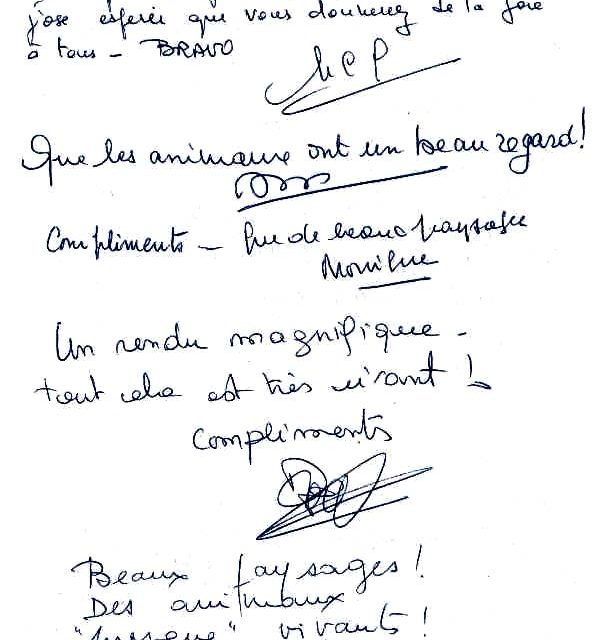 j'ose espérer que vous donnerez de la joie
à tous - BRAVO
MCP
Que les animaux ont un beau regard!
Compliments - Que de beaux paysages
Monique
Un rendu magnifique -
tout cela est très vivant !
Compliments
Beaux paysages !
Des animaux
"presque" vivants !